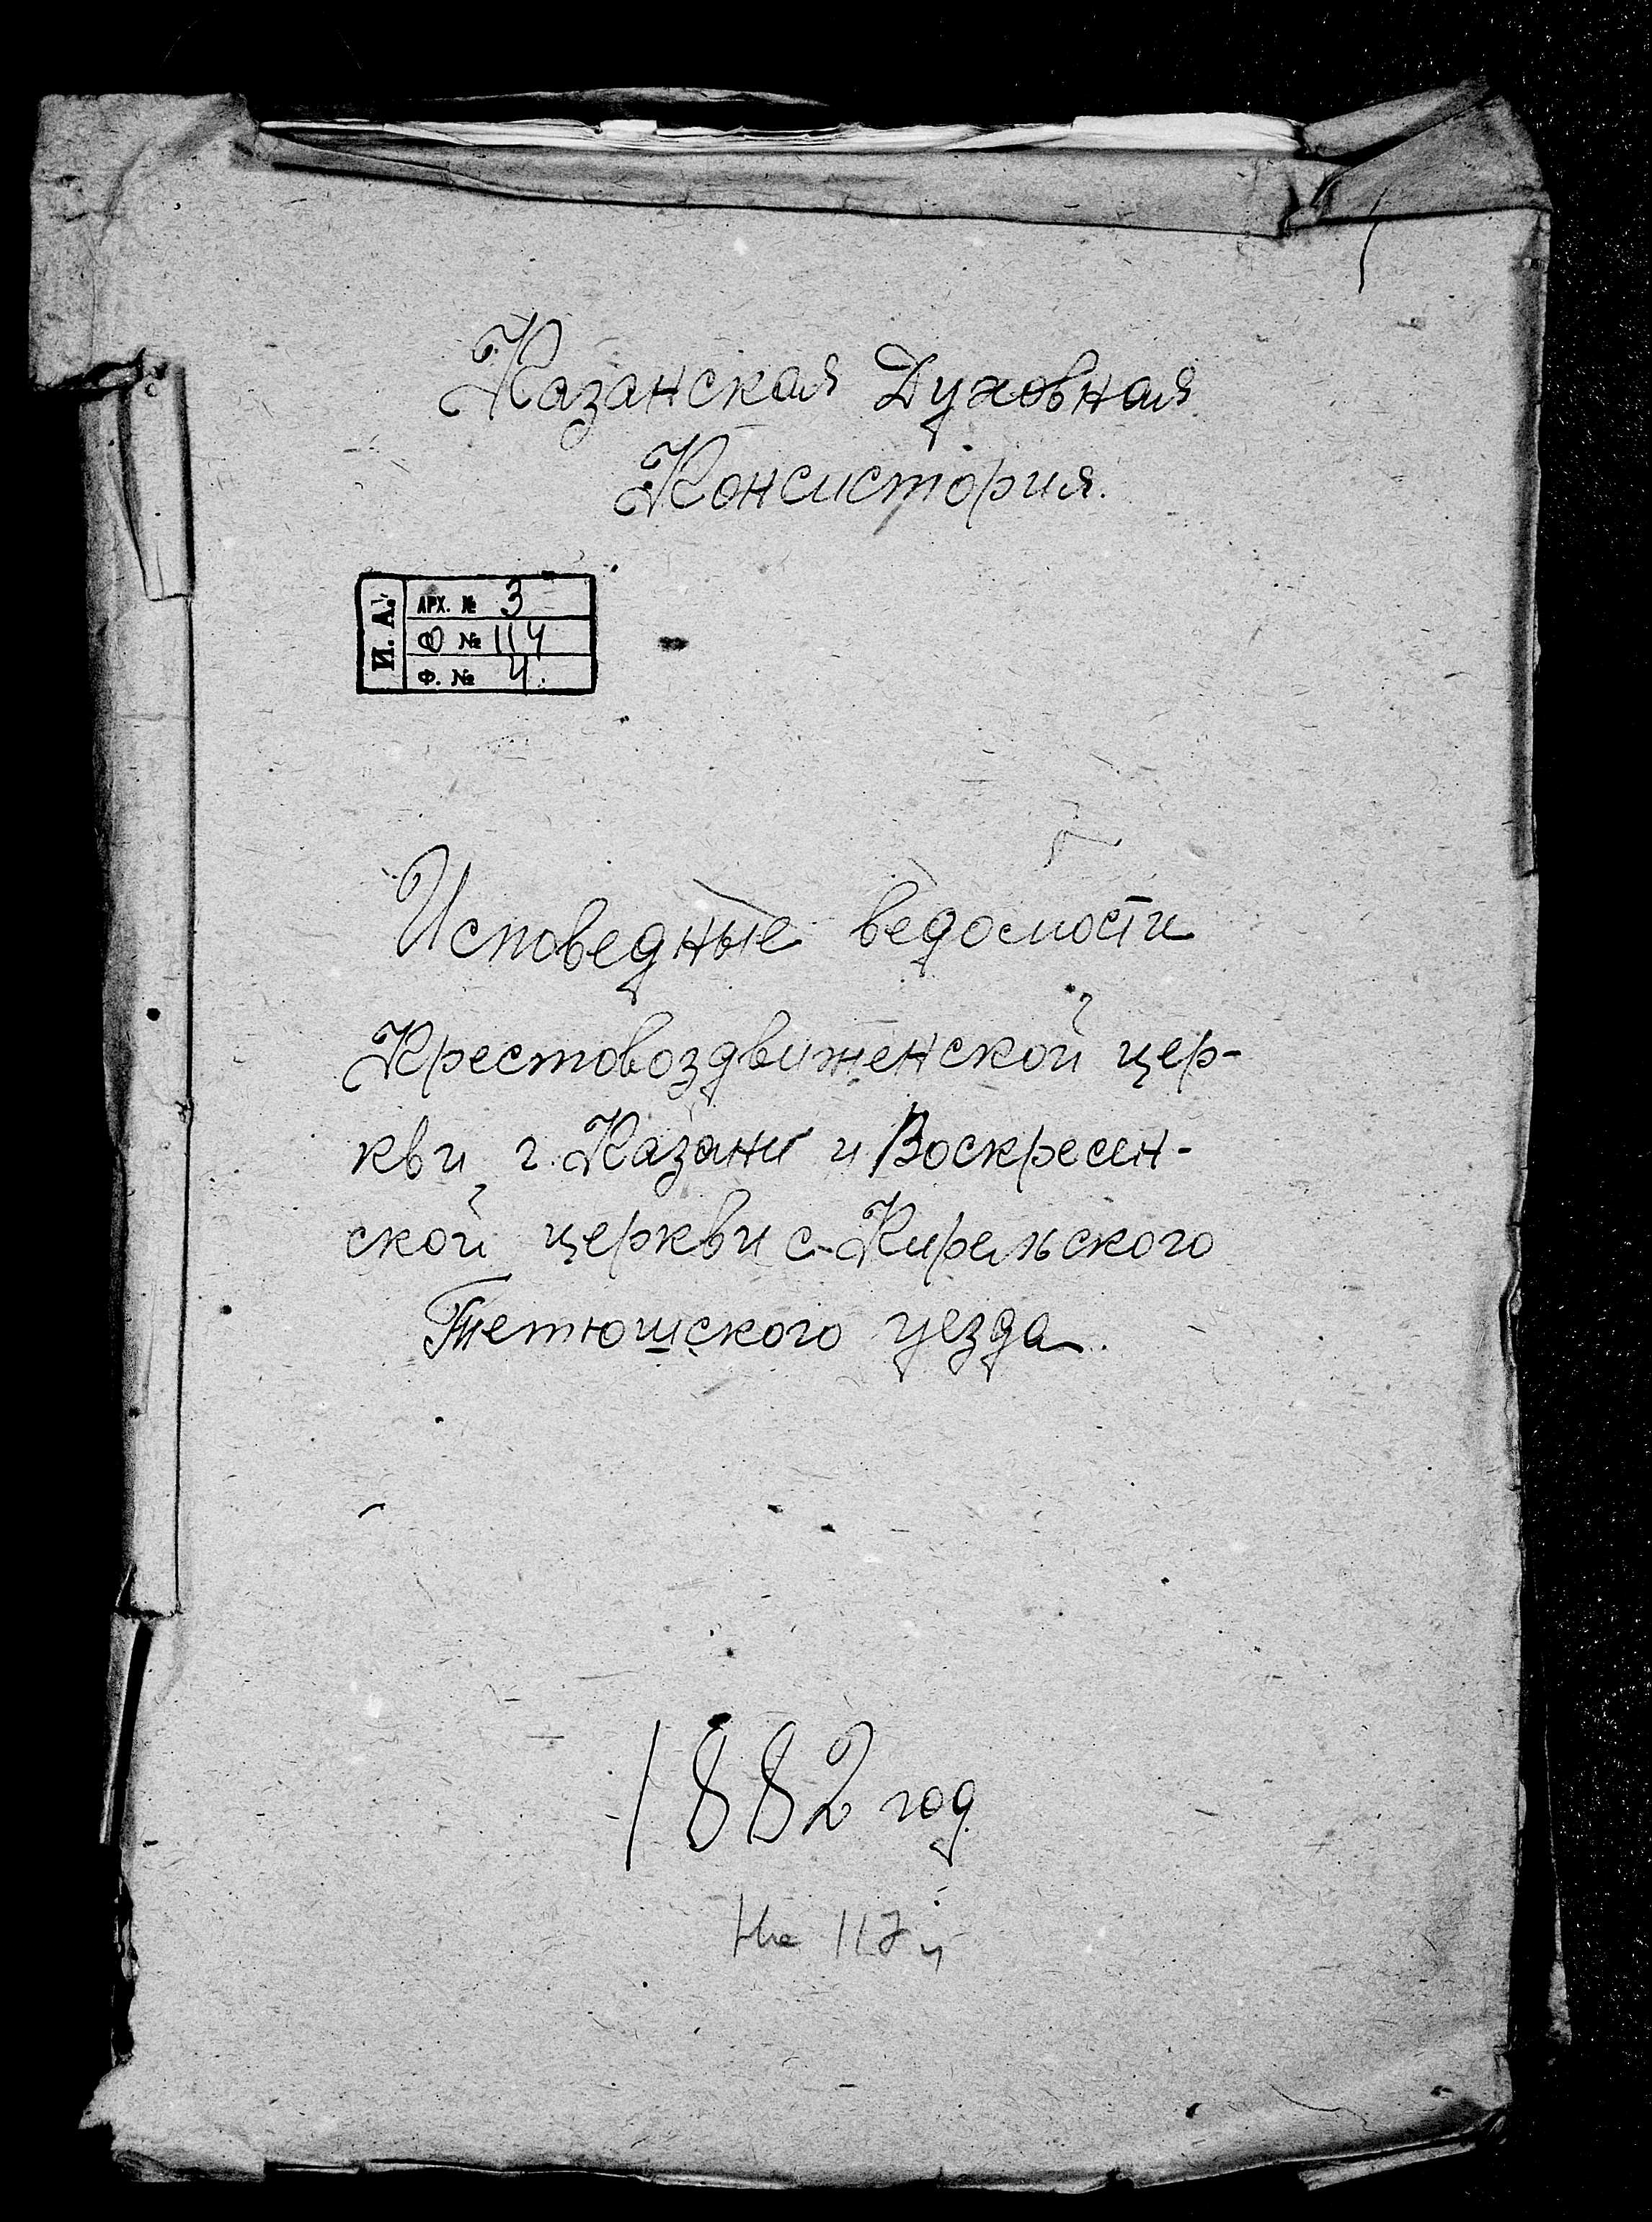 Казанская Духовная
Консистория.
И. А.
АРХ. № 3
Ф № 114
Ф. № 4
Исповедные ведомости
Крестовоздвиженской цер-
кви г. Казани и Воскресен-
ской церкви с. Кирельского
Тетюшского уезда.
1882 год
На 117 л